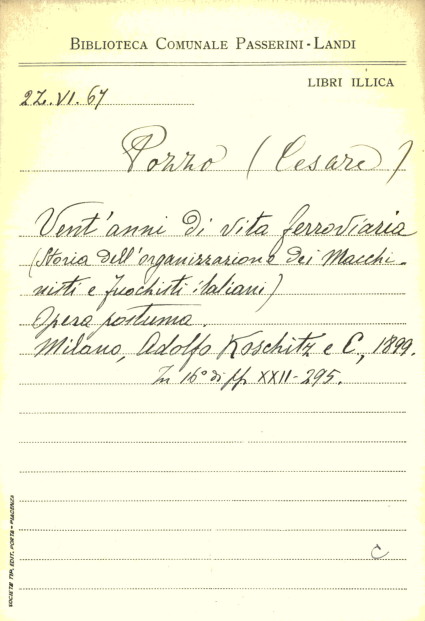 BIBLIOTECA COMUNALE PASSERINI-LANDI
LIBRI ILLICA
22.VI.67
Pozzo (Cesare)
Vent'anni di vita ferroviaria
(Storia dell'organizzazione dei Macchi-
nisti e fuochisti italiani)
Opera postuma.
Milano, Adolfo Koschitz e C., 1899.
In 16° di pp XXII-295.
C
SOCIETÀ TIP. EDIT. PORTA - PIACENZA